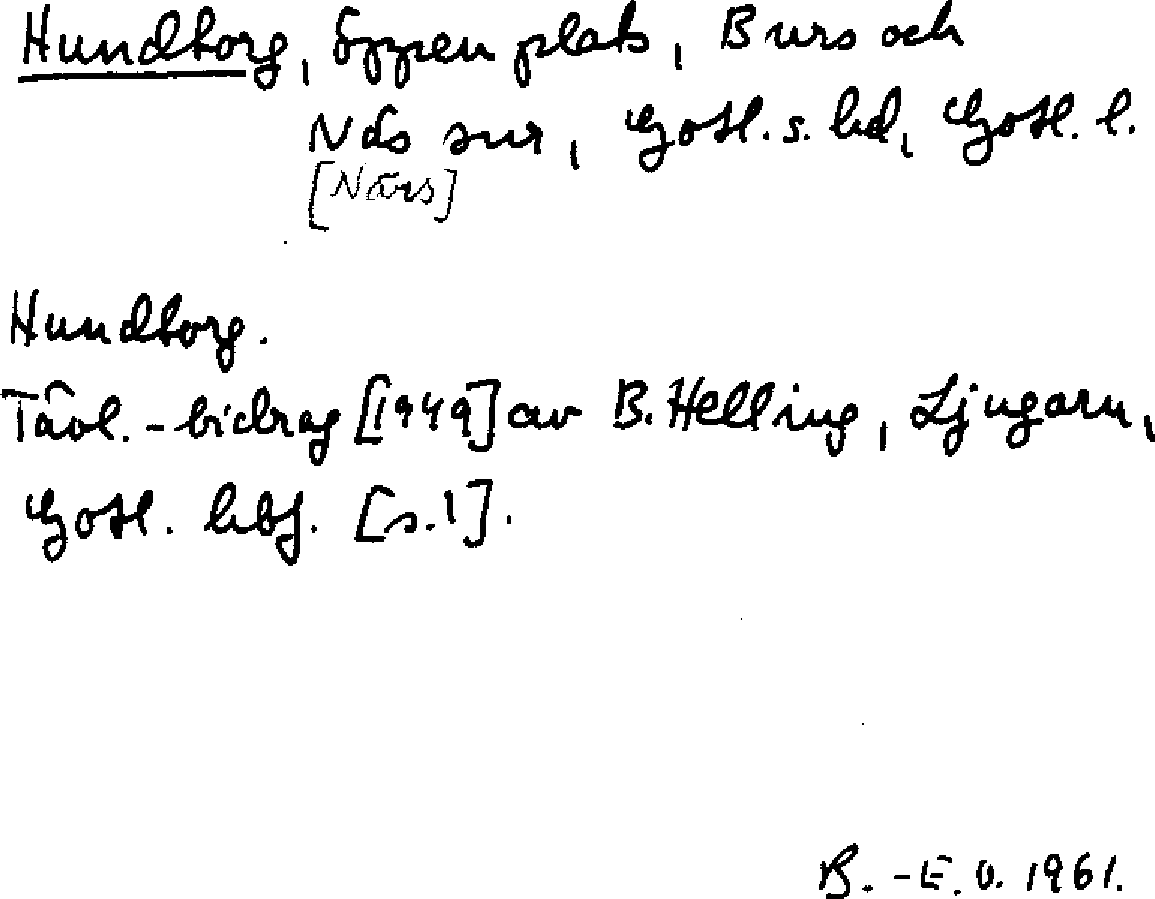 Hundborg, öppen plats, Burs och
Näs snr, Gotl. s. hd, Gotl. l.
[Närs]
Hundborg.
Tävl.-bidrag [1949] av B. Helling, Ljugarn,
Gotl. hbf. [s. 1].
B.-E. O. 1961.